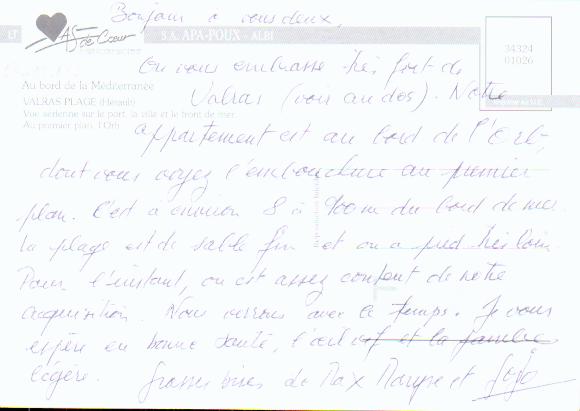 Bonjour à vous deux,
ET
AS de Cœur
S.A. APA-POUX - ALBI
34324
01026
On vous embrasse très fort de
Au bord de la Méditerranée
Valras (voir au dos). Notre
VALRAS PLAGE (Hérault)
Vue aérienne sur le port, la ville et le front de mer.
Au premier plan, l'Orb
appartement est au bord de l'Orb,
dont vous voyez l'embouchure au premier
plan. C'est à environ 8 à 900m du bord de mer.
la plage est de sable fin et on a pied très loin.
Pour l'instant, on est assez content de notre
acquisition. Nous verrons avec le temps. Je vous
espère en bonne santé, l'œil vif et la
légère. Grosses bises de Max Maryse et Jojo
Reproduction